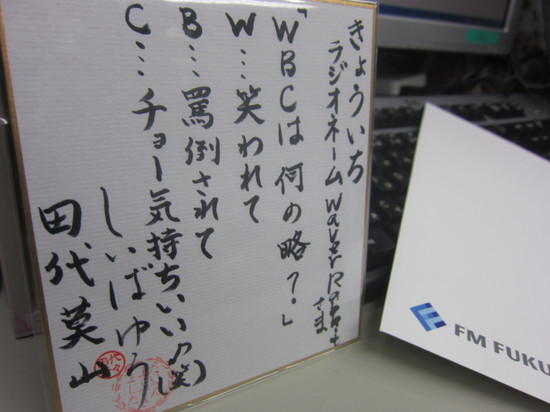 きょういち
ラジオネーム Waver Rabbit さま
「WBCは何の略?!」
W…笑われて
B…罵倒されて
C…チョー気持ちいい♪(笑)
しいばゆう
田代莫山
FM FUKU